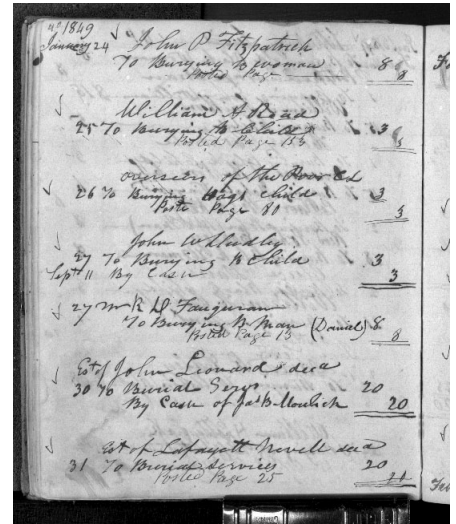 1849
January 24 John P Fitzpatrick
To Burying B woman 8
Posted Page 8
William A Read
25 To Burying B Child 3
Posted Page 133 3
overseers of the Poor
26 To Burying child 3
Poste Page 80 3
John W
27 To Burying B Child 3
Sept 11 By Cash 3
27 Mr R D
To Burying B Man (Daniel) 8
Posted Page 13 8
Est of John Leonard decd
30 To Burial Servs 20
By Cash of Jas B 20
Est of Lafayett Nevell decd
31 To Burial Services 20
Posted Page 25